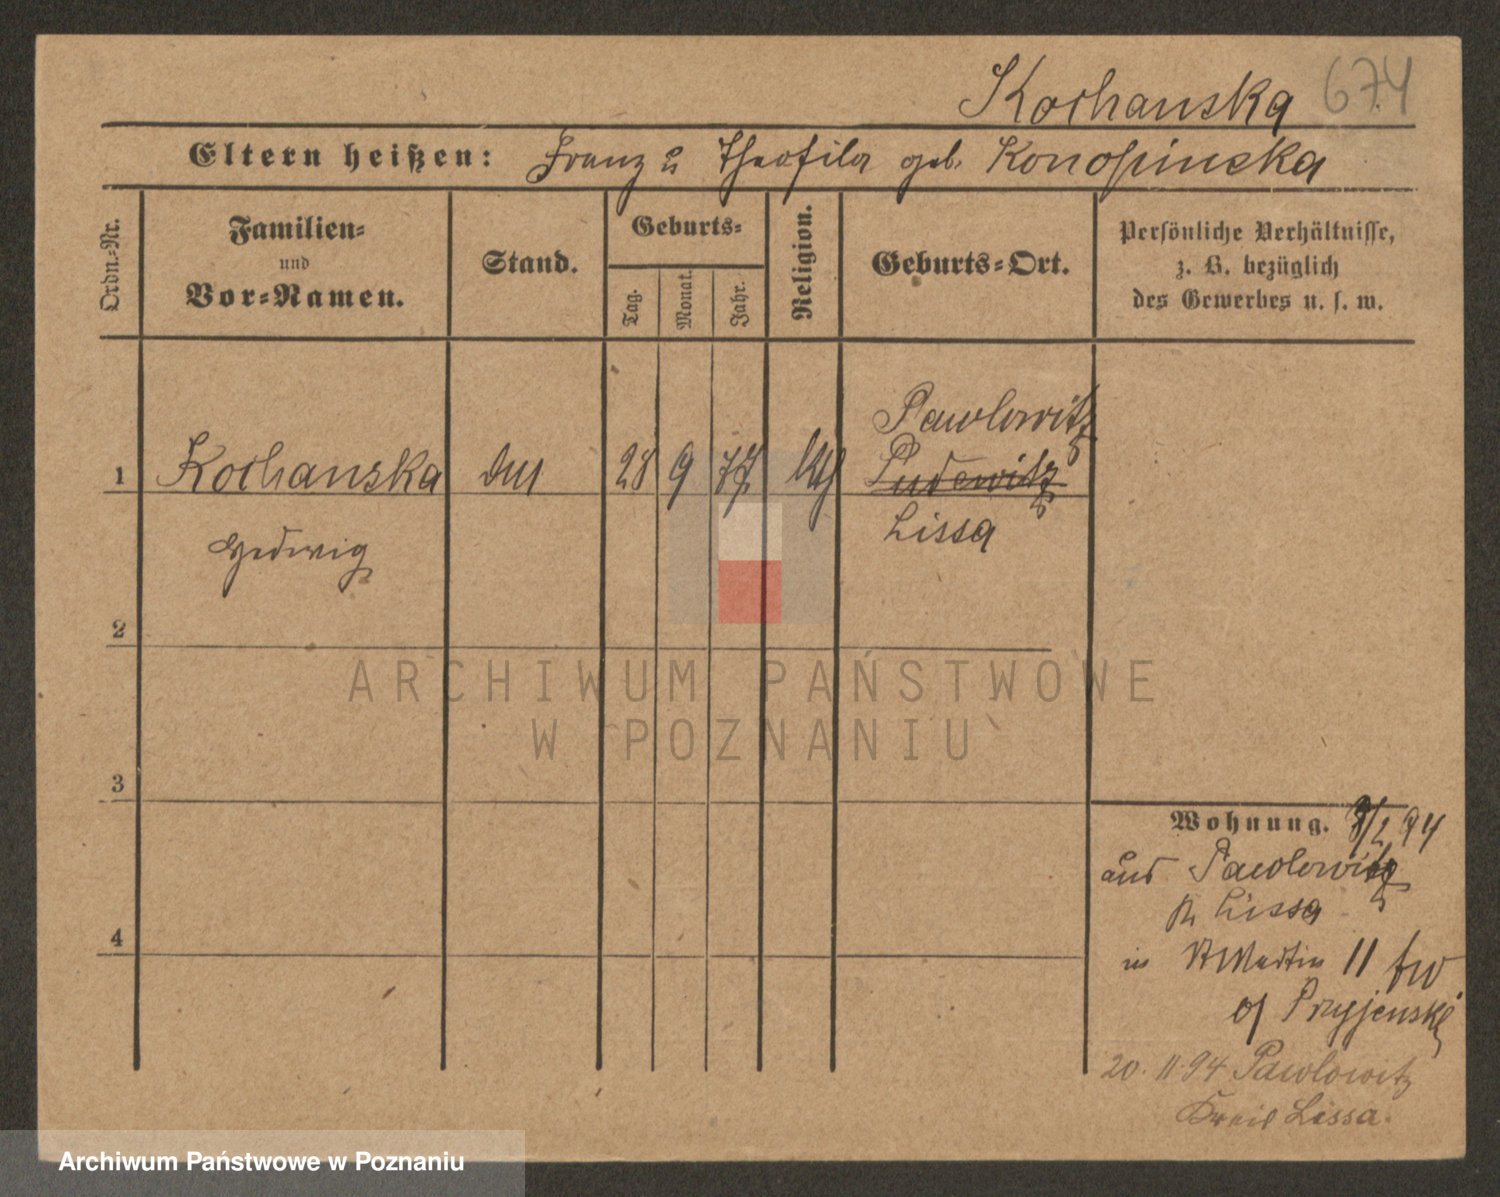 Kochanska 674
Eltern heißen: Franz u Theofila geb. Konopinska
Ordn.-Nr.
Familien-
und
Vor-Namen.
Stand.
Geburts-
Tag.
Monat.
Jahr.
Religion.
Geburts-Ort.
Persönliche Verhältnisse,
z. B. bezüglich
des Gewerbes u. s. w.
Pawlowitz
1 Kochanska 28 9 77 kth Pudewitz
Hedwig
Lissa
2
3
4
Wohnung. 8/2 94
aus Pawlowitz
Kr Lissa
in St Martin 11
20. 11. 94 Pawlowitz
Kreis Lissa.
ARCHIWUM PAŃSTWOWE
W POZNANIU
Archiwum Państwowe w Poznaniu